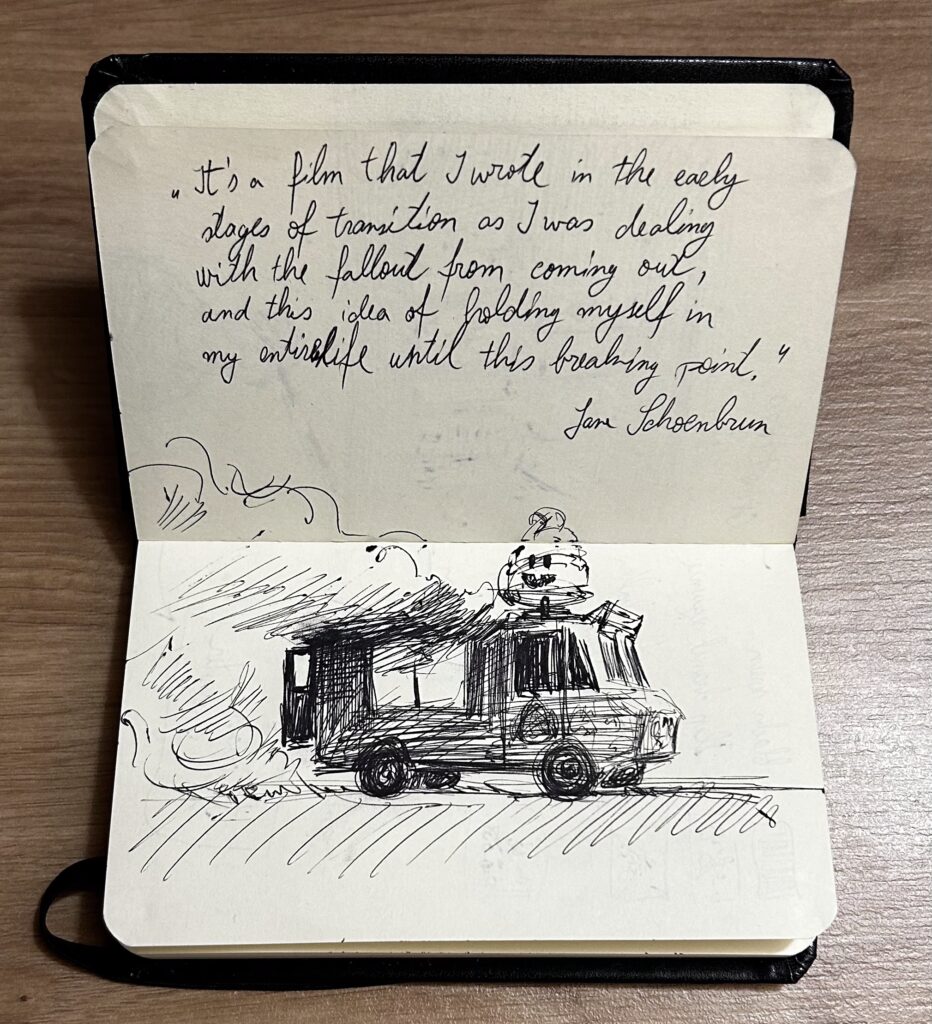 "It's a film that I wrote in the early
stages of transition as I was dealing
with the fallout from coming out,
and this idea of holding myself in
my entire life until this breaking point."
Jane Schoenbrun